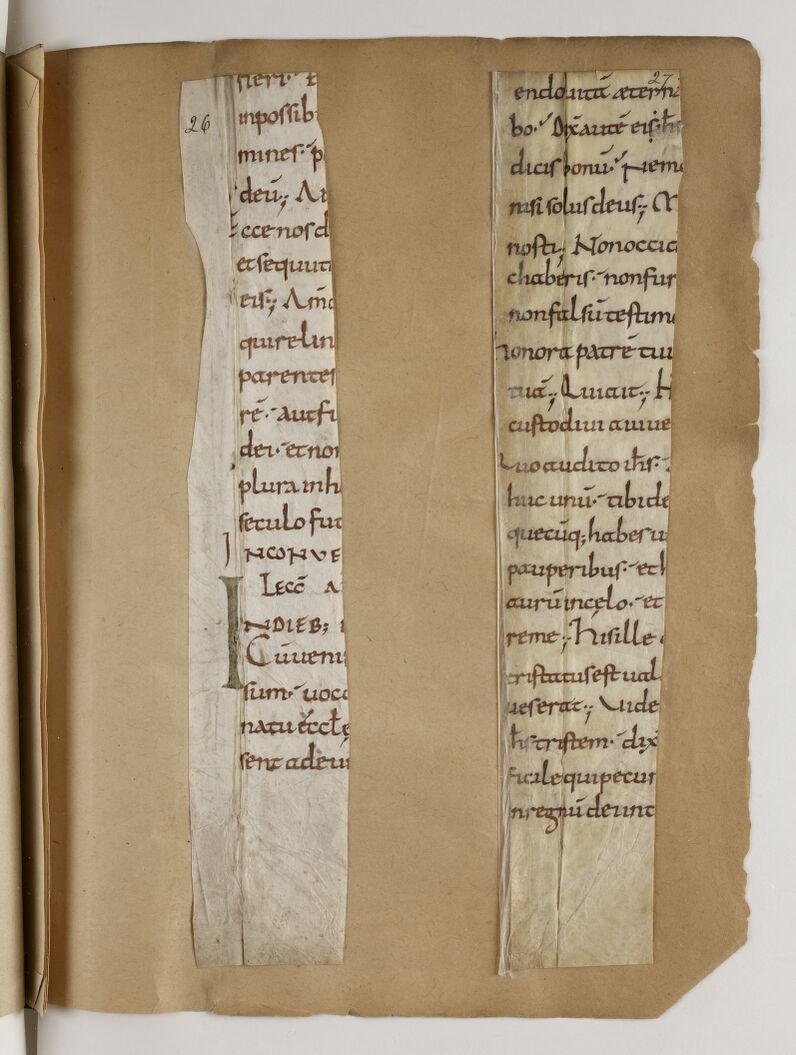 26
fieri · E
inpossib
mines · p
deū ;, Ai
cce nos d
et sequuti
eis ;, Am̄
qui relin
parentes
rē · aut fi
dei · et non
plura inh
seculo fut
IN CONVE
LECC̄ A
IN DIEB;
Cūueni
sum · uoca
natu
sent ad eum
27
endo uitā æternā
bo · Dix̄ autē eis ih̄s
dicis bonū · Nemo
nisi solus deus ;, M
nosti ;, Non occid
chaberis · non fur
non falsū testimo
honora patrē tuū
tuā ;, Qui ait ;, H
custodiui a iuue
Quo audito ih̄s ·
huc unū · tibi de
quecūq; habes u
pauperibus · et h
aurū in cęlo · et
re me ;, His ille
tristatus est ual
ues erat ;, Uide
ih̄s tristem · dix
ficile qui pecun
n regnū dei int